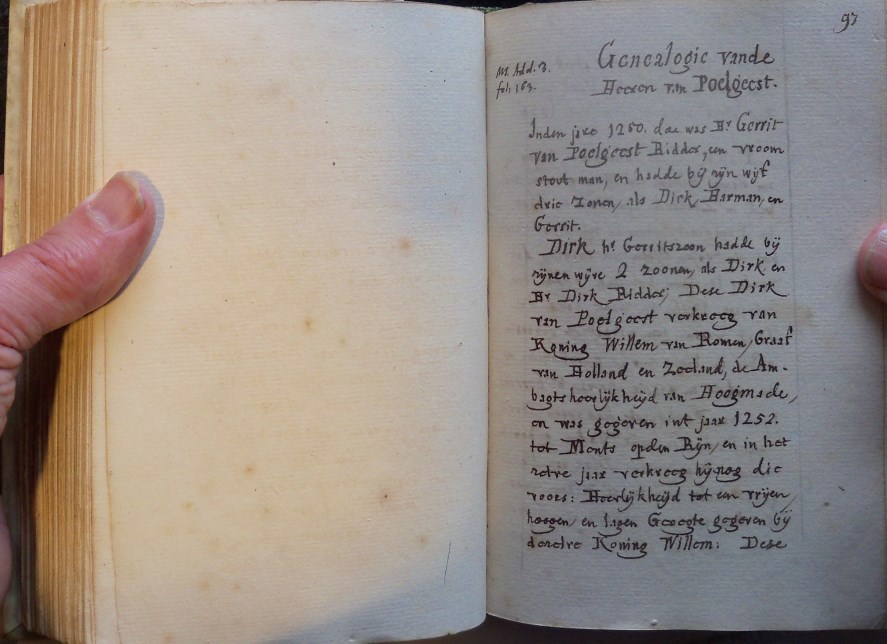 97
M. Add. 3.
fol: 163.
Genealogie vande
Heeren van Poelgeest.
Inden jare 1250. doe was Hr Gerrit
van Poelgeest Ridder, een vroom
stout man, en hadde bij zijn wijf
drie zonen, als Dirk, Harman, en
Gerrit.
Dirk hr Gerritszoon hadde bij
zijnen wijve 2 zoonen, als Dirk en
Hr Dirk Ridder; Dese Dirk
van Poelgeest verkreeg van
Koning Willem van Romen, Graaf
van Holland en Zeeland, de Am-
bagtsheerlijkheijd van Hoogmade,
en was gegeven int jaar 1252.
tot Monts opden Rijn, en in het
zelve jaar verkreeg hij nog die
voors: Heerlijkheijd tot een vrijen
hoogen en lagen gegeven bij
denzelve Koning Willem: Dese